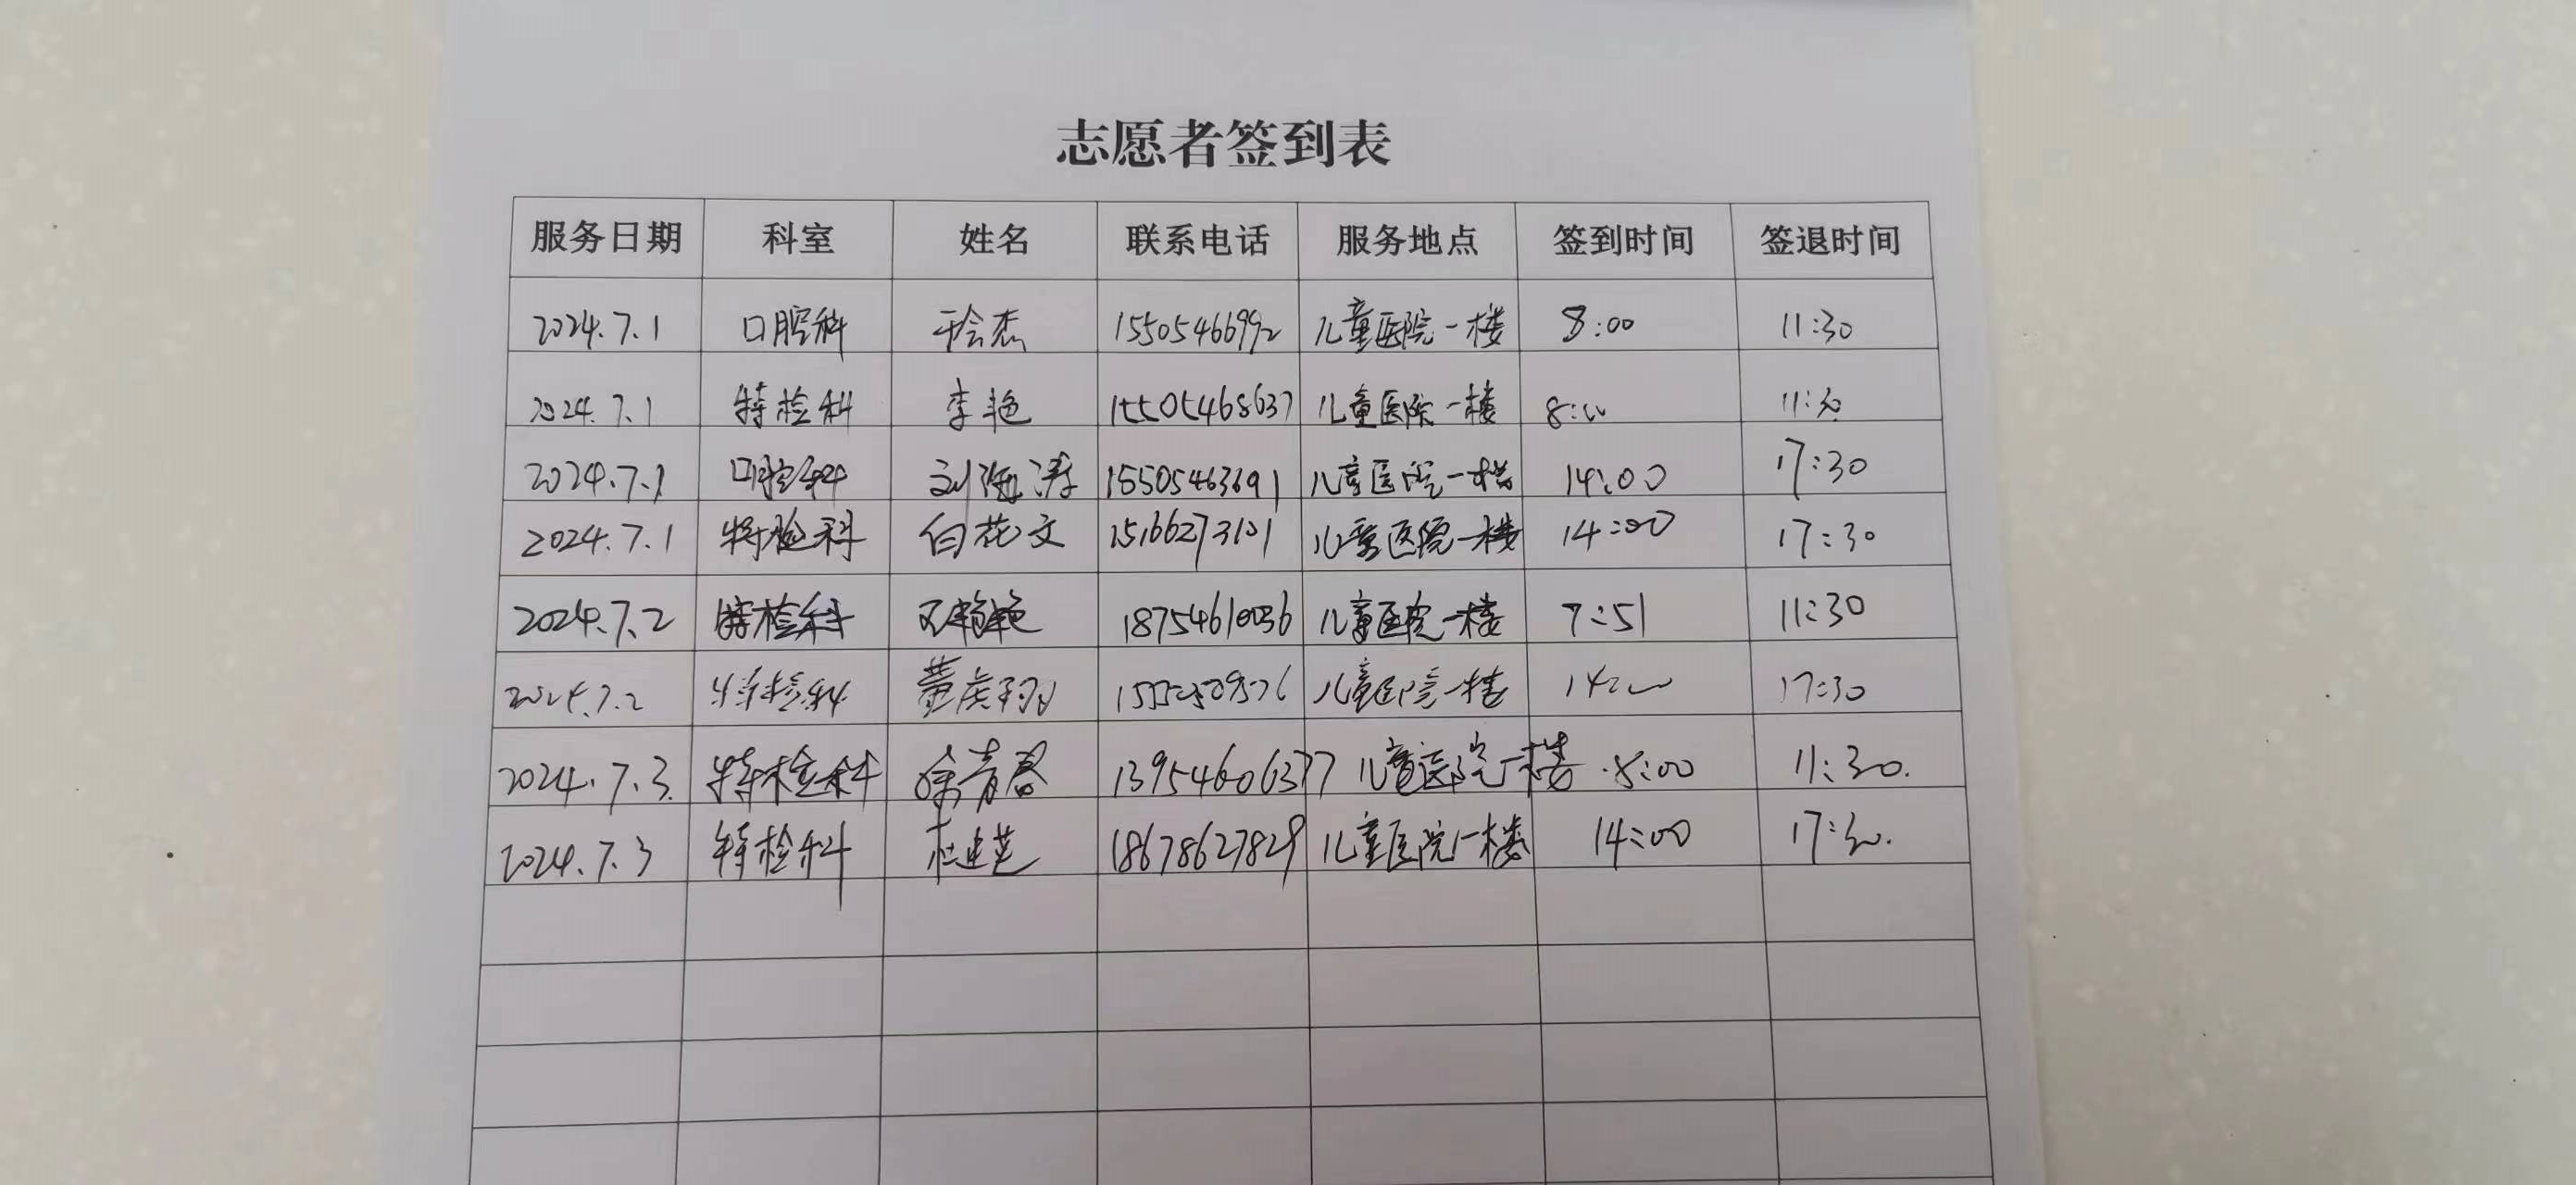 志愿者签到表
服务日期 科室 姓名 联系电话 服务地点 签到时间 签退时间
2024.7.1 口腔科 15505466992 儿童医院一楼 8:00 11:30
2024.7.1 特检科 李艳 15505468637 儿童医院一楼 8:00 11:30
2024.7.1 口腔科 刘海涛 15505463691 儿童医院一楼 14:00 17:30
2024.7.1 特检科 白花文 15166273101 儿童医院一楼 14:00 17:30
2024.7.2 特检科 18754610036 儿童医院一楼 7:51 11:30
2024.7.2 特检科 儿童医院一楼 14:00 17:30
2024.7.3 特检科 徐青春 13954606377 儿童医院一楼 8:00 11:30.
2024.7.3 特检科 杜建芝 18678627829 儿童医院一楼 14:00 17:30.